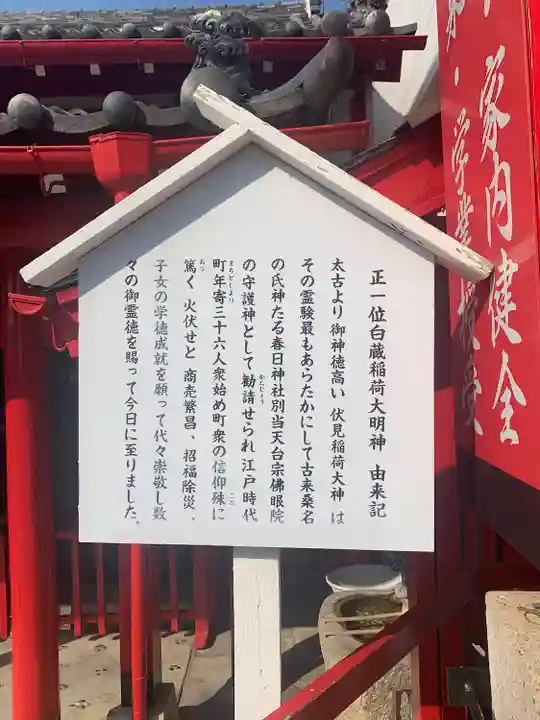 家内健全
・学業
正一位白蔵稲荷大明神 由来記
太古より 御神徳高い 伏見稲荷大神 は
その霊験最もあらたかにして古来桑名
の氏神たる春日神社別当天台宗佛眼院
の守護神として勧請せられ 江戸時代
かんじょう
町年寄三十六人衆始め町衆の信仰殊に
まちどしより
こと
篤く 火伏せと 商売繁昌、招福除災、
あつ
子女の学徳成就を願って代々崇敬し数
々の御霊徳を賜って今日に至りました。